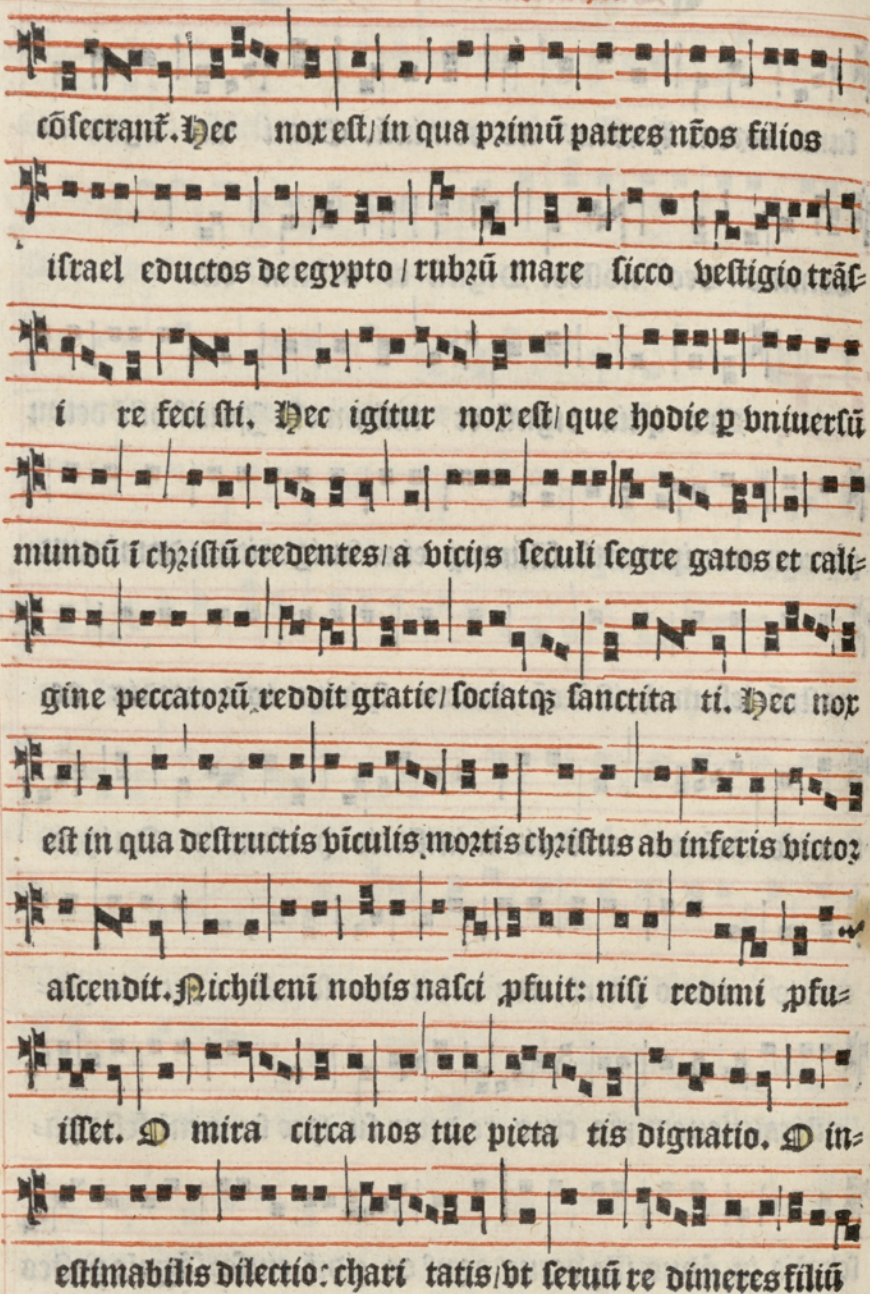 cōsecrant᷑. Hec nox est/ in qua primū patres nr̄os filios
israel eductos de egypto / rubrū mare sicco vestigio trās⸗
i re feci sti. Hec igitur nox est/ que hodie ꝑ vniuersū
mundū ī christū credentes/ a vicijs seculi segre gatos et cali⸗
gine peccatorū reddit gratie/ sociatqꝫ sanctita ti. Hec nox
est in qua destructis vīculis mortis christus ab inferis victor
ascendit. Nichil enī nobis nasci ꝓfuit: nisi redimi ꝓfu⸗
isset. O mira circa nos tue pieta tis dignatio. O in⸗
estimabilis dilectio: chari tatis/ vt seruū re dimeres filiū